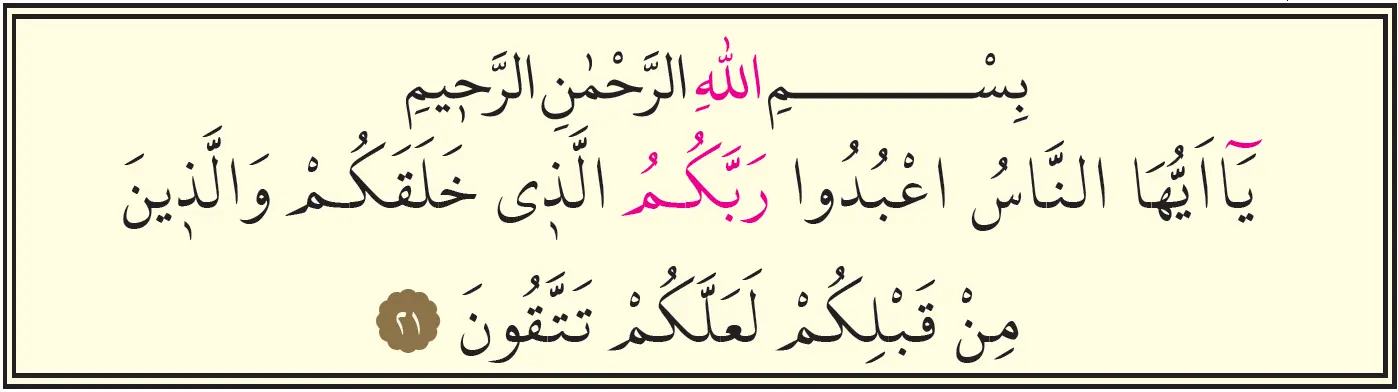 بِسْمِ اللّٰهِ الرَّحْمٰنِ الرَّح۪يمِ
يَٓا اَيُّهَا النَّاسُ اعْبُدُوا رَبَّكُمُ الَّذ۪ى خَلَقَكُمْ وَالَّذ۪ينَ
مِنْ قَبْلِكُمْ لَعَلَّكُمْ تَتَّقُونَ ٢١